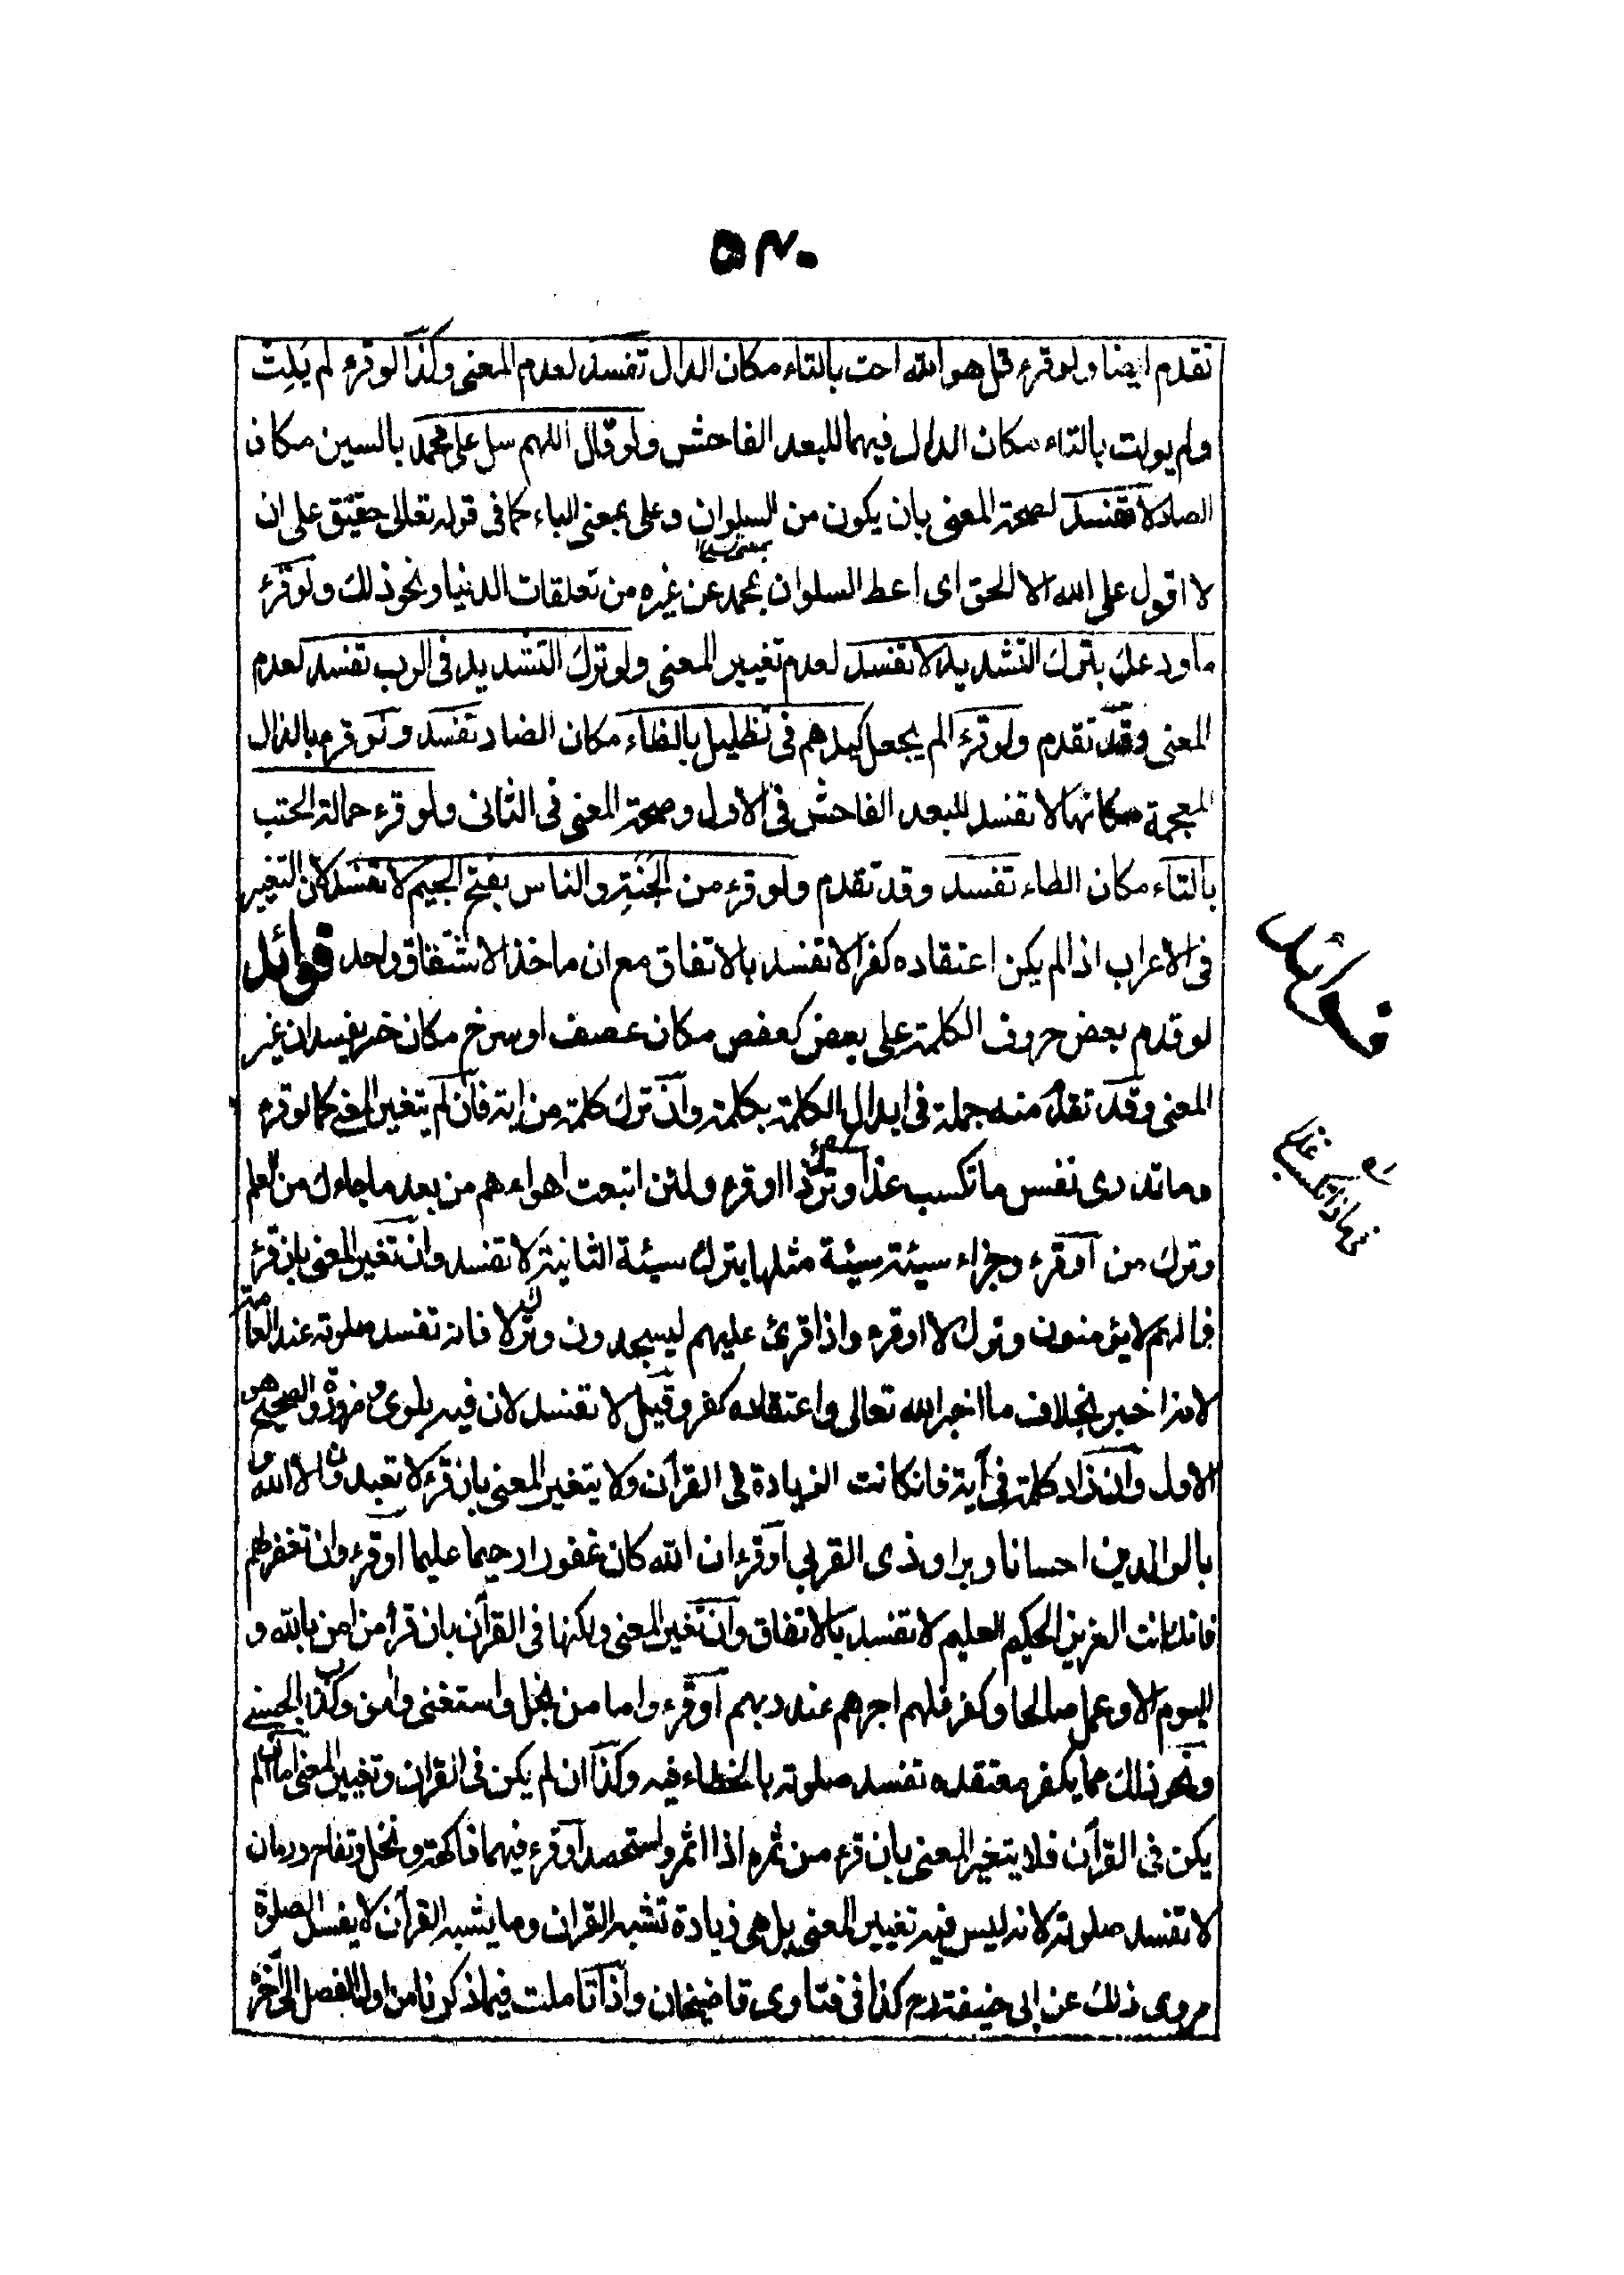 ٥٣٠
تقدم ايضا ولو قرء قل هو الله احت بالتاء مكان الدال تفسد لعدم المعنى وكذا لو قرء لم يلت
ولم يولت بالتاء مكان الدال فيهما للبعد الفاحش ولو قال اللهم سل على محمد بالسين مكان
الصاد لا تفسد لصحة المعنى بان يكون من السلوان وعلى بمعنى الباء كما فى قوله تعالى حقيق على ان
لا اقول على الله الا الحق اى اعط السلوان بمحمد عن غيره من تعلقات الدنيا ونحو ذلك ولو قرء
ما ودعك بترك التشديد لا تفسد لعدم تغيير المعنى ولو ترك التشديد فى الرب تفسد لعدم
المعنى وقد تقدم ولو قرء الم يجعل كيدهم فى تظليل بالظاء مكان الضاد تفسد ولو قرء بالذال
المعجمة مكانها لا تفسد للبعد الفاحش فى الاول وصحة المعنى فى الثانى ولو قرء حمالة الحتب
بالتاء مكان الطاء تفسد وقد تقدم ولو قرء من الجنة والناس بفتح الجيم لا تفسد لان التغيير
فى الاعراب اذا لم يكن اعتقاده كفرا لا تفسد بالاتفاق مع ان ماخذ الاشتقاق واحد فوائد
لو قدم بعض حروف الكلمة على بعض كعفص مكان عصف او سرخ مكان خسر يفسد ان غير
المعنى وقد تقدم منه جملة فى ابدال الكلمة بكلمة وان ترك كلمة من اية فان لم يتغير المعنى كما لو قرء
وما تدرى نفس ما تكسب غدا وترك ذا او قرء ولئن اتبعت اهواءهم من بعد ما جاءك من العلم
وترك من او قرء وجزاء سيئة سيئة مثلها بترك سيئة الثانية لا تفسد وان تغير المعنى بان قرء
فما لهم لا يؤمنون وترك لا او قرء واذا قرئ عليهم ليسجدون وترك لا فانه تفسد صلوته عند العامة
لانه اخبر بخلاف ما اخبر الله تعالى واعتقاده كفر وقيل لا تفسد لان فيه بلوى وضرورة والصحيح هو
الاول وان زاد كلمة فى آية فان كانت الزيادة فى القرآن ولا يتغير المعنى بان قرء لا تعبدون الا الله و
بالوالدين احسانا وبرا وذى القربى او قرء ان الله كان غفورا رحيما عليما او قرء وان تغفر لهم
فانك انت العزيز الحكيم العليم لا تفسد بالاتفاق وان تغير المعنى ولكنها فى القرآن بان قرأ من امن بالله و
اليوم الا وعمل صالحا وكفر فلهم اجرهم عند ربهم او قرء واما من بخل واستغنى وامن وكذب بالحسنى
ونحو ذلك مما يكفر معتقده تفسد صلوته بالخطاء فيه وكذا ان لم يكن فى القران وتغيير المعنى اما ان لم
يكن فى القرآن فلا يتغير المعنى بان قرء من ثمره اذا اثمر واستحصد او قرء فيهما فاكهة ونخل وتفاح ورمان
لا تفسد صلوته لانه ليس فيه تغيير المعنى بل هى زيادة تشبه القران وما يشبه القرآن لا يفسد الصلوة
مروى ذلك عن ابى حنيفة رح كذا فى فتاوى قاضيخان واذا تاملت فيما ذكرنا من اول الفصل الى آخره
فوائد